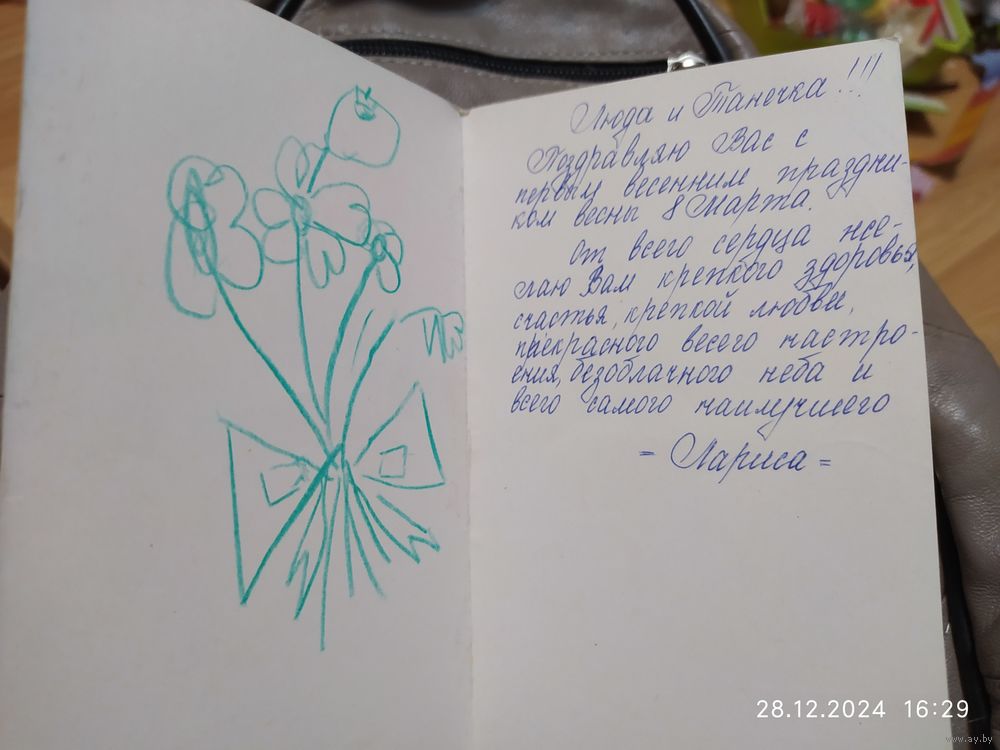 Люда и Танечка!!!
Поздравляю Вас с
первым весенним праздни-
ком весны 8 Марта.
От всего сердца же-
лаю Вам крепкого здоровья,
счастья, крепкой любви,
прекрасного весего настро-
ения, безоблачного неба и
всего самого наилучшего
= Лариса =
28.12.2024 16:29
www.ay.by